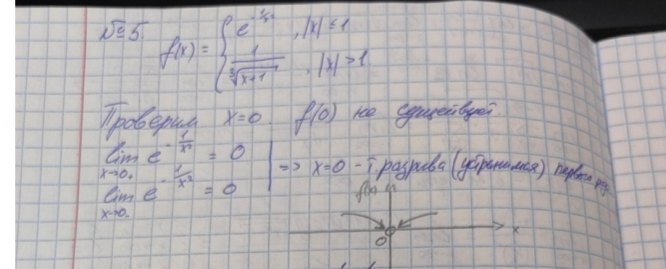 №5.
f(x) = { e^{-1/x²}, |x| ≤ 1
1/∛(x+1), |x| > 1
Проверим x=0. f(0) не существует.
lim x→0₊ e^{-1/x²} = 0
lim x→0₋ e^{-1/x²} = 0
=> x=0 - т. разрыва (устранимая) первого рода
f(x)
x
0